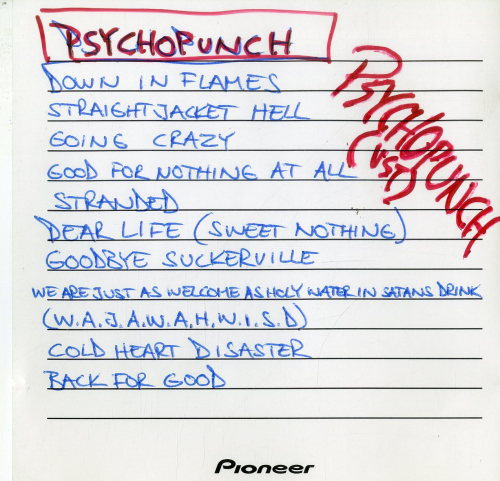 PSYCHOPUNCH
DOWN IN FLAMES
STRAIGHTJACKET HELL
GOING CRAZY
GOOD FOR NOTHING AT ALL
STRANDED
DEAR LIFE (SWEET NOTHING)
GOODBYE SUCKERVILLE
WE ARE JUST AS WELCOME AS HOLY WATER IN SATANS DRINK
(W.A.J.A.W.A.H.W.I.S.D)
COLD HEART DISASTER
BACK FOR GOOD
PSYCHOPUNCH
Pioneer